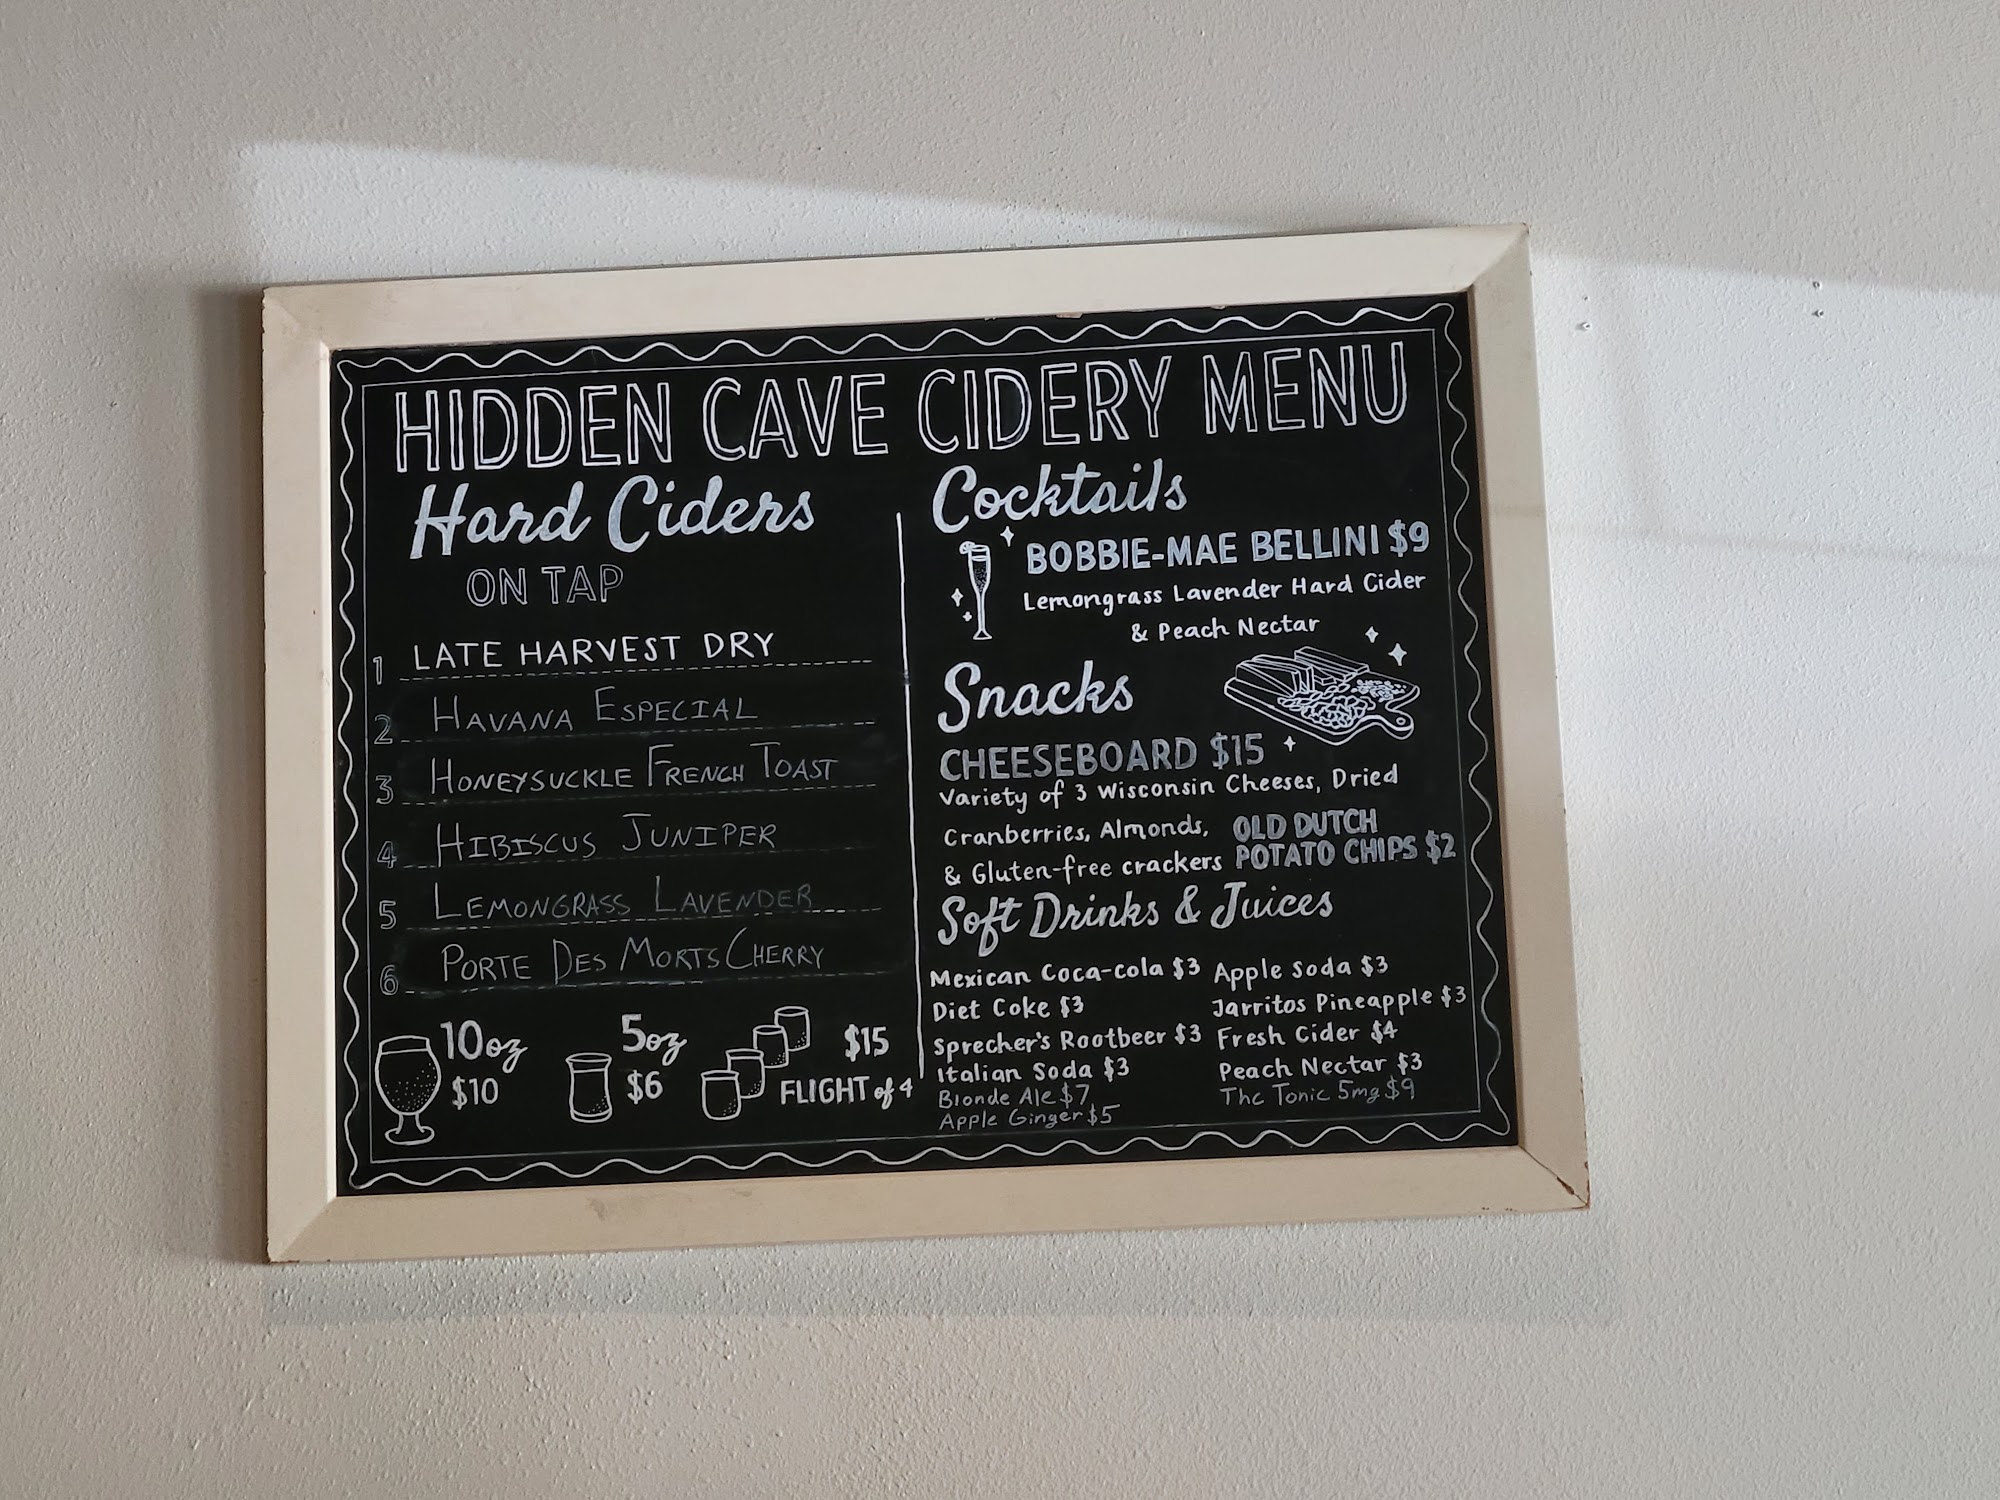 HIDDEN CAVE CIDERY MENU
Hard Ciders
ON TAP
1 LATE HARVEST DRY
2 HAVANA ESPECIAL
3 HONEYSUCKLE FRENCH TOAST
4 HIBISCUS JUNIPER
5 LEMONGRASS LAVENDER
6 PORTE DES MORTS CHERRY
10oz
$10
5oz
$6
$15
FLIGHT of 4
Cocktails
BOBBIE-MAE BELLINI $9
Lemongrass Lavender Hard Cider
& Peach Nectar
Snacks
CHEESEBOARD $15
Variety of 3 Wisconsin Cheeses, Dried
Cranberries, Almonds,
& Gluten-free crackers
OLD DUTCH
POTATO CHIPS $2
Soft Drinks & Juices
Mexican Coca-cola $3
Diet Coke $3
Sprecher's Rootbeer $3
Italian Soda $3
Blonde Ale $7
Apple Ginger $5
Apple Soda $3
Jarritos Pineapple $3
Fresh Cider $4
Peach Nectar $3
Thc Tonic 5mg $9